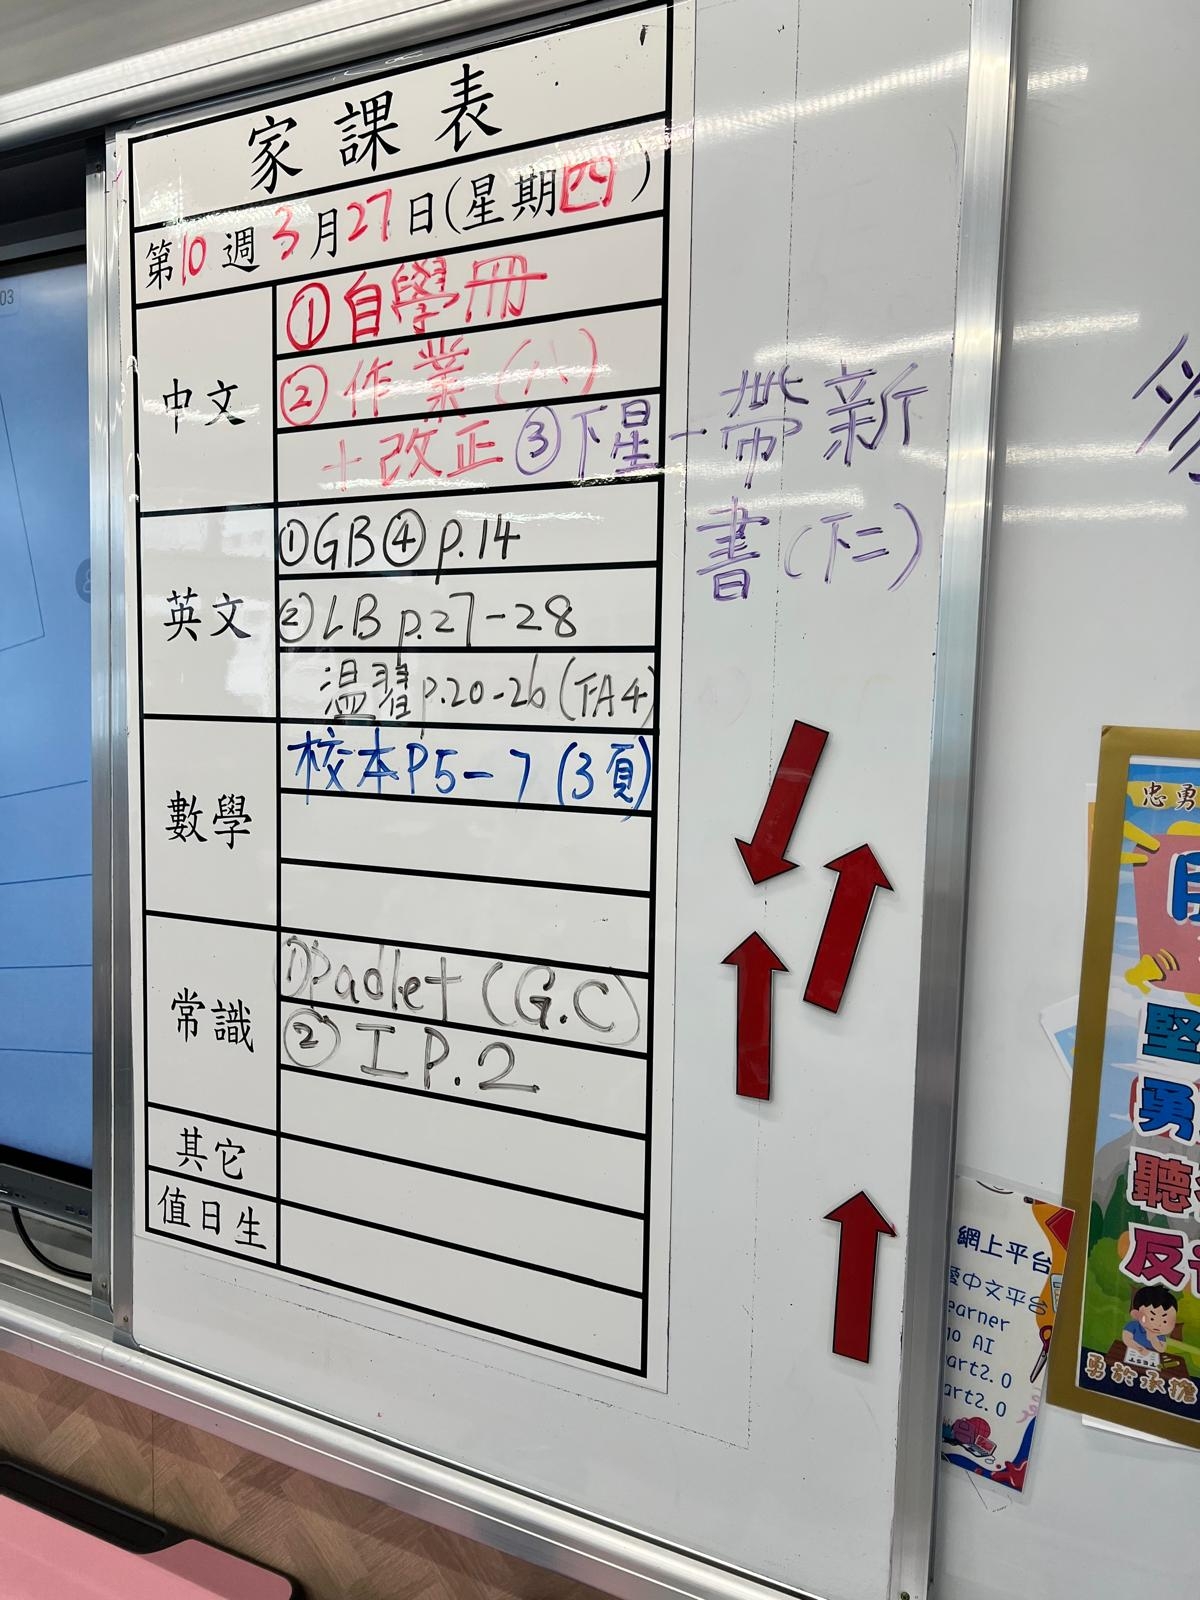 家課表
第10週3月27日(星期四)
中文
①自學冊
②作業(八)
+改正③下星一帶新
書(下二)
英文
①GB④p.14
②LB p.27-28
溫習p.20-26(FA4)
數學
校本P5-7(3頁)
常識
①Padlet(G.C)
②I P.2
其它
值日生
03
忠勇
堅
勇
聽
反
勇於承擔
網上平台
愛中文平台
earner
AI
art2.0
art2.0